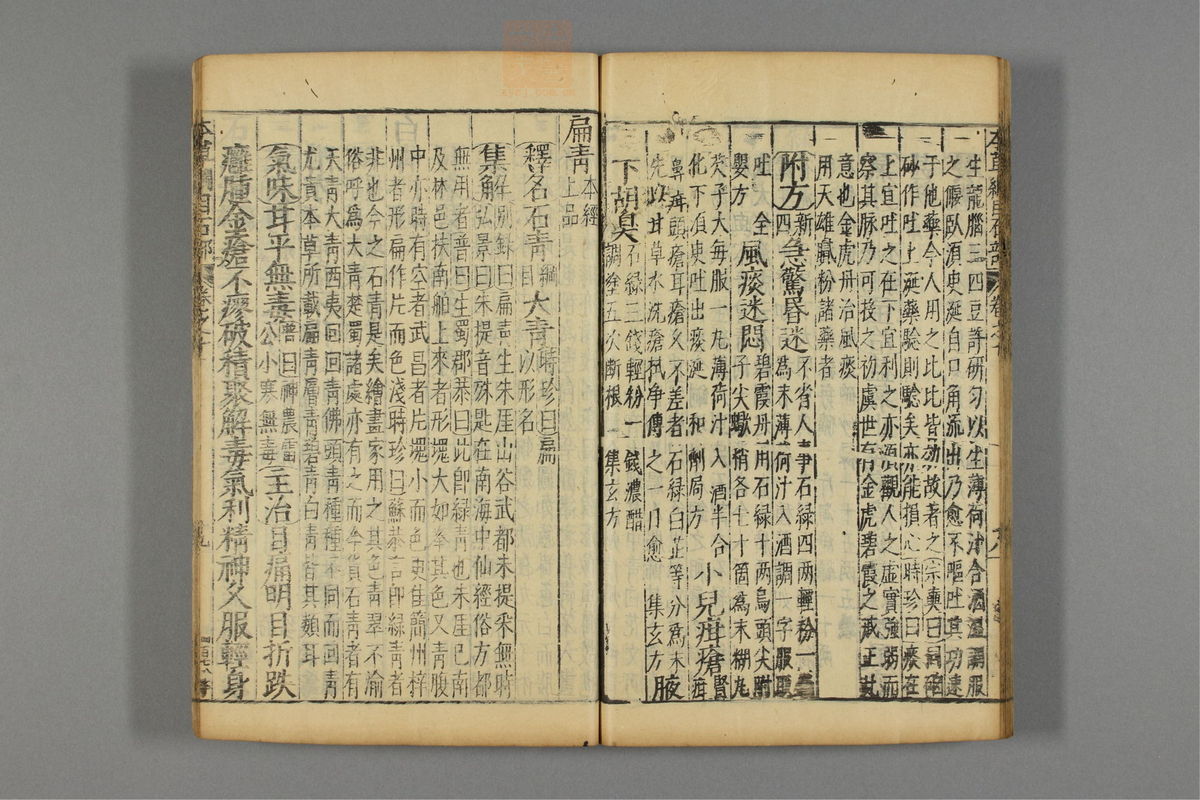 本草綱目石部
卷之十
生龍腦三四豆許研勻以生薄荷汁合酒溫調服
之偃臥須臾涎自口角流出乃愈不嘔吐其功速
于他藥今人用之比比皆效故著之宗奭曰同硇
砂作吐上涎藥驗則驗矣亦能損心時珍曰痰在
上宜吐之在下宜利之亦須觀人之虛實強弱而
察其脉乃可投之初虞世有金虎碧霞之戒正此
意也金虎丹治風痰
用天雄膩粉諸藥者
附方新四急驚昏迷不省人事石綠四兩輕粉一
為末薄荷汁入酒調一字服取
吐 全嬰方風痰迷悶碧霞丹用石綠十兩烏頭尖附
子尖蝎梢各七十箇為末糊丸
芡子大每服一丸薄荷汁入酒半合
化下須臾吐出痰涎 和劑局方小兒疳瘡腎疳
鼻疳頭瘡耳瘡久不差者石綠白芷等分為末
先以甘草水洗瘡拭净傅之一日愈 集玄方腋
下胡臭石綠三錢輕粉一錢濃醋
調塗五次斷根 集玄方
扁青本經上品
釋名石青綱目大青時珍曰扁以形名
集解別錄曰扁青生朱厓山谷武都朱提采無時
弘景曰朱提音殊匙在南海中仙經俗方都
無用者普曰生蜀郡恭曰此即綠青也朱厓巴南
及林邑扶南舶上來者形塊大如拳其色又青腹
中亦時有空者武昌者片塊小而色更佳簡州梓
州者形扁作片而色淺時珍曰蘇恭言即綠青者
非也今之石青是矣繪畫家用之其色青翠不渝
俗呼為大青楚蜀諸處亦有之而今貨石青者有
天青大青西夷回回青佛頭青種種不同而回青
尤貴本草所載扁青層青碧青白青皆其類耳
氣味甘平無毒普曰神農雷公小寒無毒主治目痛明目折跌
癰腫金瘡不瘳破積聚解毒氣利精神久服輕身
本草綱目石部
卷之十
九